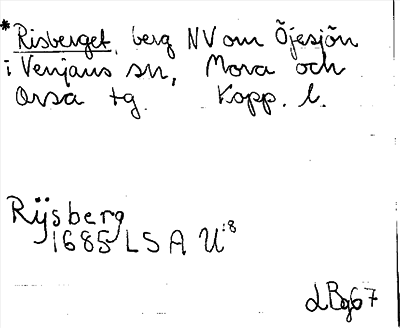 * Risberget, berg NV om Öjesjön
i Venjans sn, Mora och
Orsa tg. Kopp. l.
Rÿsberg
1685 LSA U:8
LBg67